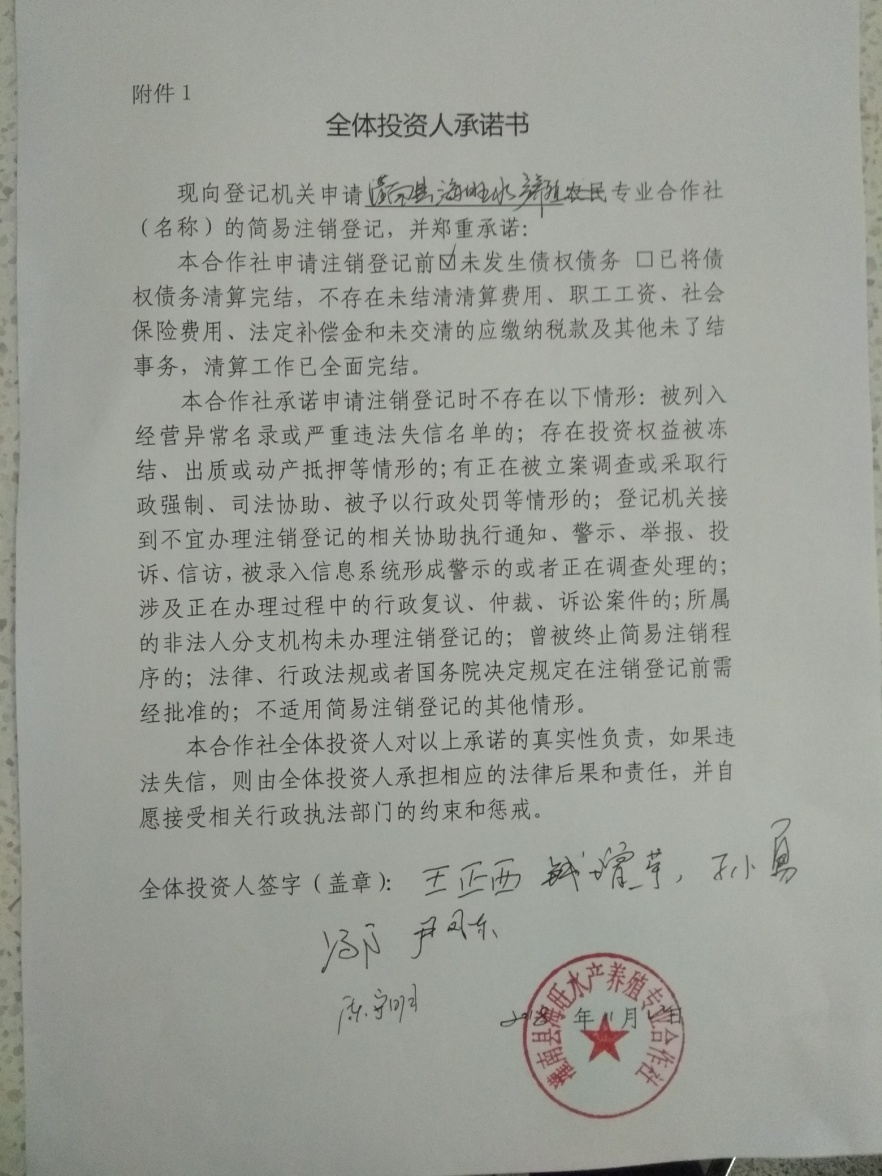 附件1
全体投资人承诺书
现向登记机关申请灌南县海旺水产养殖农民专业合作社
（名称）的简易注销登记，并郑重承诺：
本合作社申请注销登记前☑未发生债权债务 □已将债
权债务清算完结，不存在未结清清算费用、职工工资、社会
保险费用、法定补偿金和未交清的应缴纳税款及其他未了结
事务，清算工作已全面完结。
本合作社承诺申请注销登记时不存在以下情形：被列入
经营异常名录或严重违法失信名单的；存在投资权益被冻
结、出质或动产抵押等情形的；有正在被立案调查或采取行
政强制、司法协助、被予以行政处罚等情形的；登记机关接
到不宜办理注销登记的相关协助执行通知、警示、举报、投
诉、信访，被录入信息系统形成警示的或者正在调查处理的；
涉及正在办理过程中的行政复议、仲裁、诉讼案件的；所属
的非法人分支机构未办理注销登记的；曾被终止简易注销程
序的；法律、行政法规或者国务院决定规定在注销登记前需
经批准的；不适用简易注销登记的其他情形。
本合作社全体投资人对以上承诺的真实性负责，如果违
法失信，则由全体投资人承担相应的法律后果和责任，并自
愿接受相关行政执法部门的约束和惩戒。
全体投资人签字（盖章）： 王正西 孙小勇
尹凤东
陈守明
2018年11月 日
灌南县海旺水产养殖专业合作社